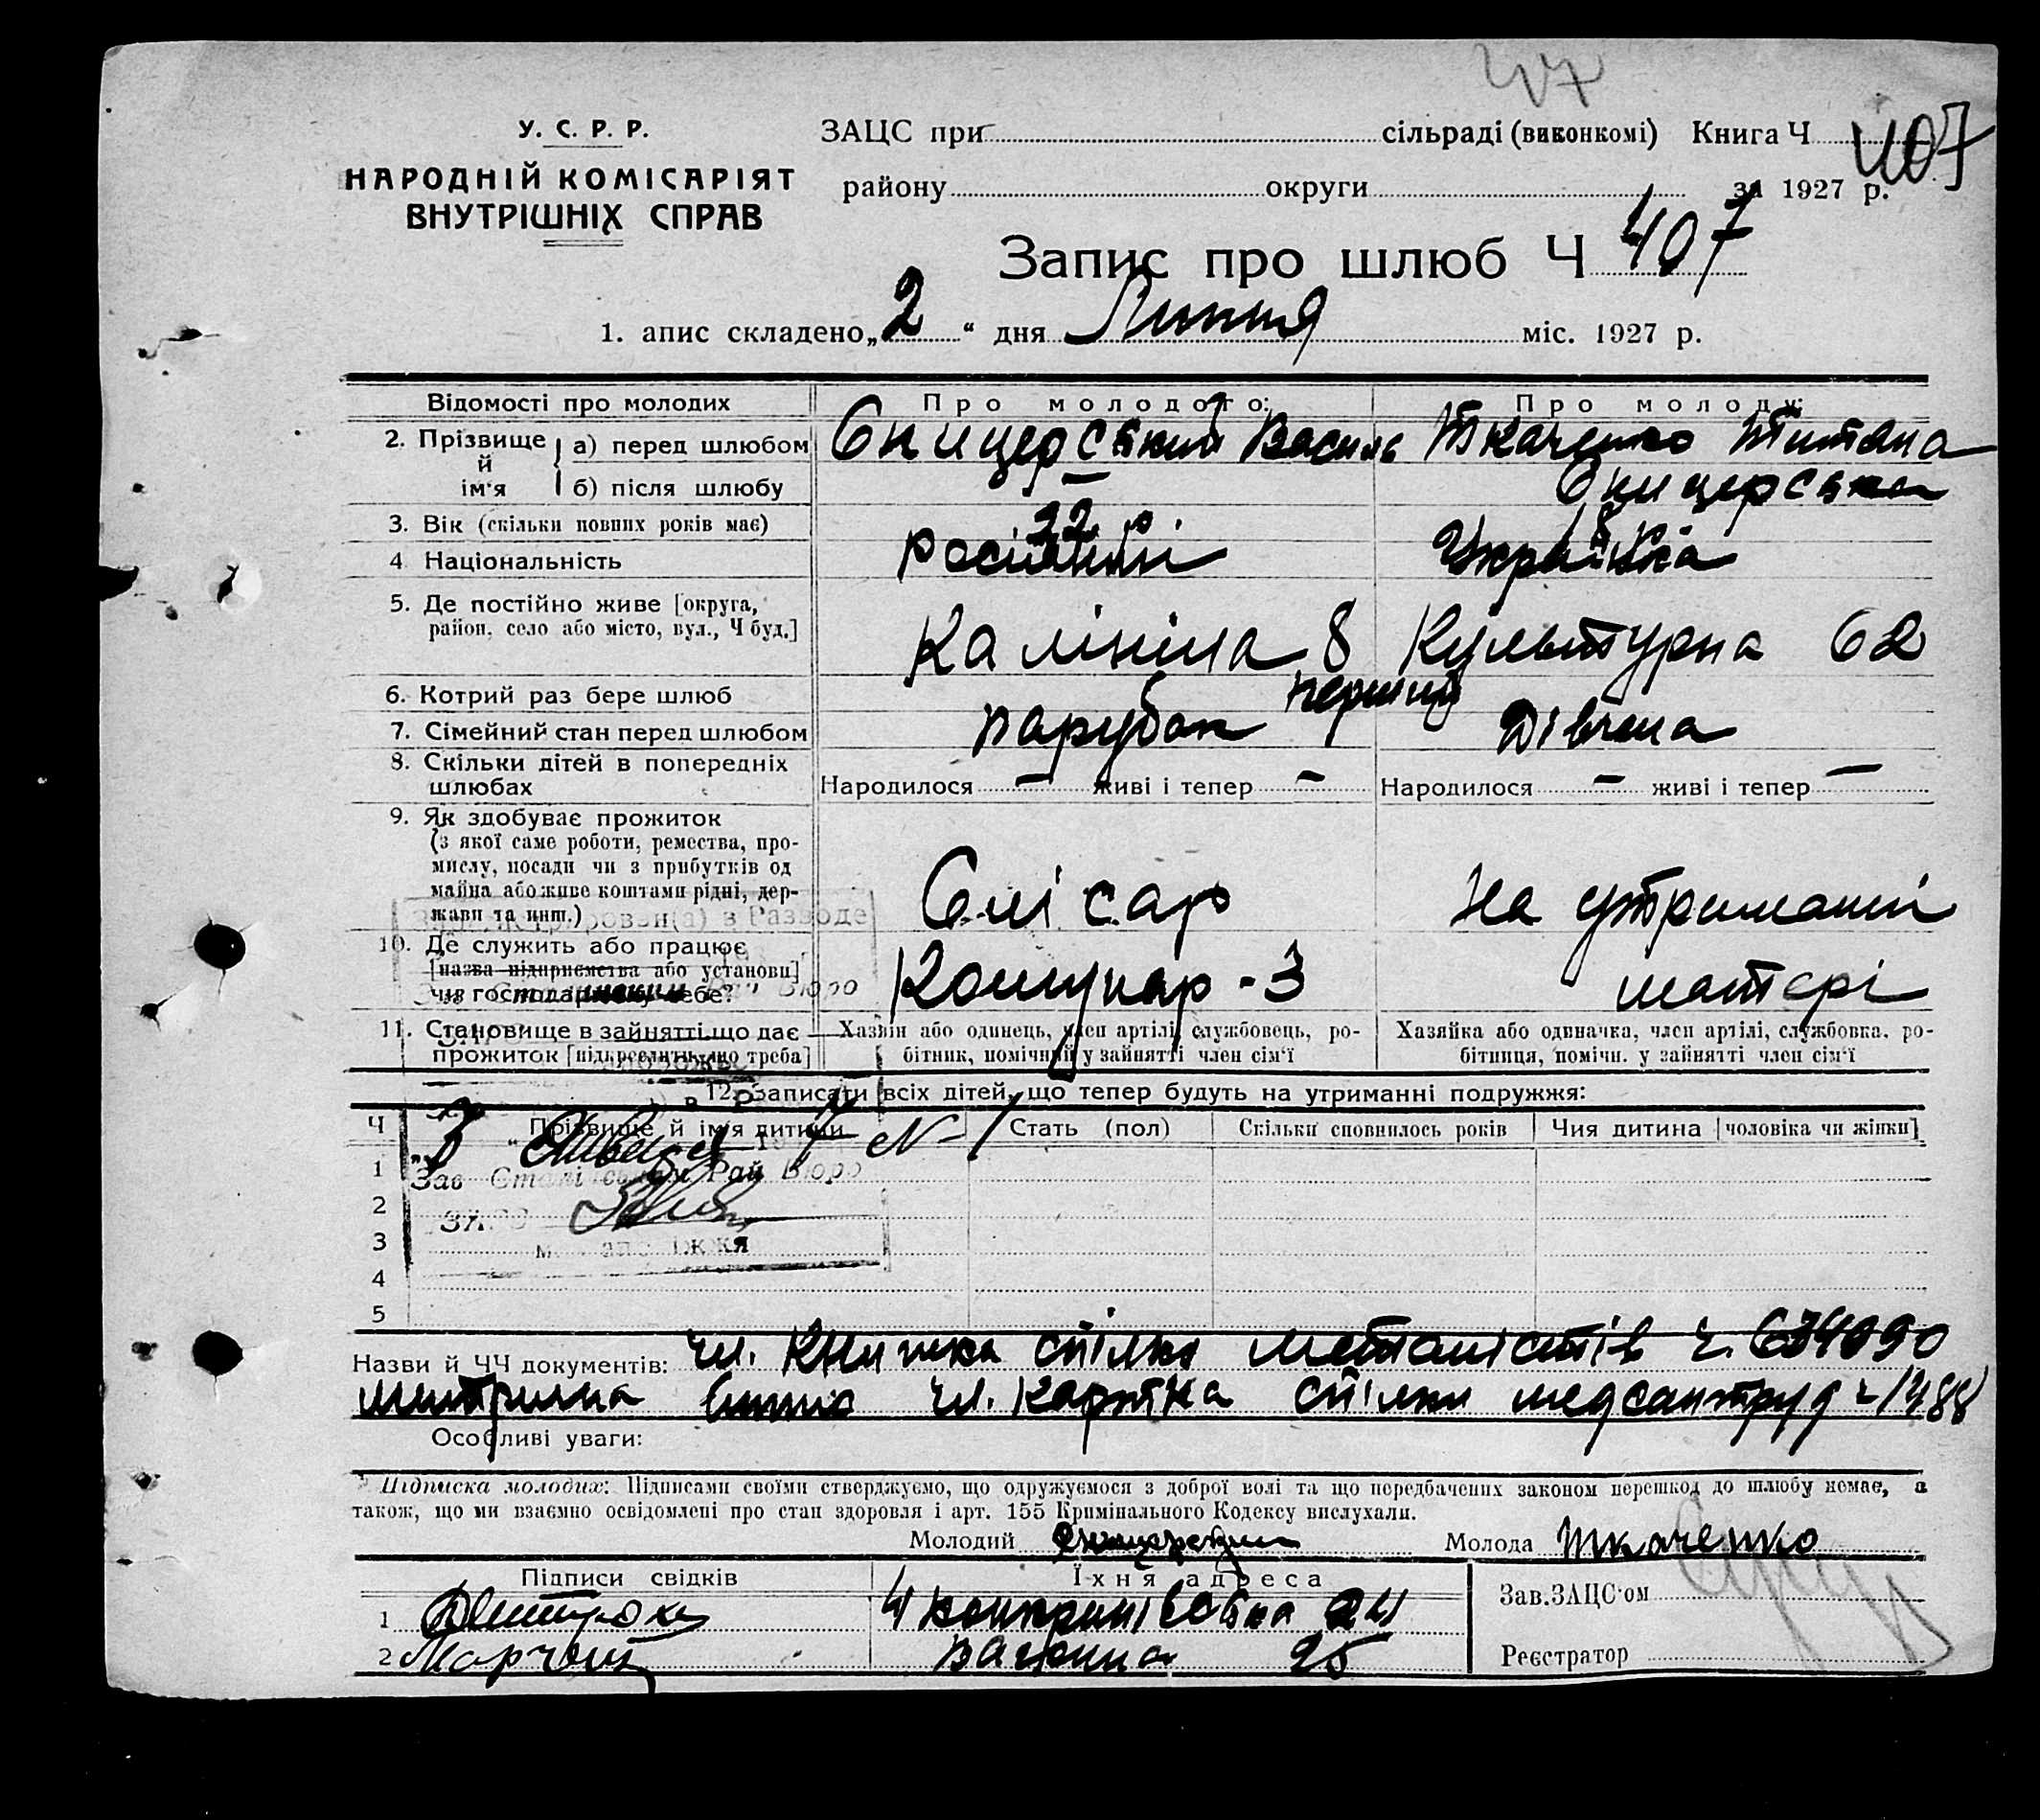 407
У. С. Р. Р.
НАРОДНІЙ КОМІСАРІЯТ
ВНУТРІШНІХ СПРАВ
ЗАЦС при сільраді (виконкомі) Книга Ч 407
району округи за 1927 р.
Запис про шлюб Ч 407
1. апис складено „2“ дня Липня міс. 1927 р.
Відомості про молодих Про молодого: Про молоду:
2. Прізвище й ім'я а) перед шлюбом Сницерський Василь Ткаченко Титяна
б) після шлюбу Сницерська
3. Вік (скільки повних років має) 22 р. 18
4 Національність Українка
5. Де постійно живе [округа, район, село або місто, вул., Ч буд.] Калініна 8 Культурна 62
6. Котрий раз бере шлюб перший
7. Сімейний стан перед шлюбом парубок Дівчина
8. Скільки дітей в попередніх шлюбах Народилося — живі і тепер — Народилося — живі і тепер —
9. Як здобуває прожиток
(з якої саме роботи, ремества, про-
мислу, посади чи з прибутків од
майна або живе коштами рідні, дер-
жави та инш.) Слісар На утриманні
10. Де служить або працює
[назва підприємства або установи]
чи господарює у себе? Комунар-3 матері
11. Становище в зайнятті що дає прожиток [підкреслить що треба]
Хазяїн або одинець, член артілі, службовець, ро-
бітник, помічний у зайнятті член сім'ї
Хазяйка або одиначка, член артілі, службовка, ро-
бітниця, помічн. у зайнятті член сім'ї
12. Записати всіх дітей, що тепер будуть на утриманні подружжя:
Ч Прізвище й ім'я дитини Стать (пол) Скільки сповнилось років Чия дитина [чоловіка чи жінки]
1
2
3
4
5
Зав Рай Бюро
Назви й ЧЧ документів: чл. Книжка спілки металістів ч.
чл. картка спілки медсантруд ч 1488
Особливі уваги:
Підписка молодих: Підписами своїми стверджуємо, що одружуємося з доброї волі та що передбачених законом перешкод до шлюбу немає, а
також, що ми взаємно освідомлені про стан здоровля і арт. 155 Кримінального Кодексу вислухали.
Молодий Молода Ткаченко
Підписи свідків Їхня адреса Зав.ЗАЦС'ом
1 24
2 25 Реєстратор